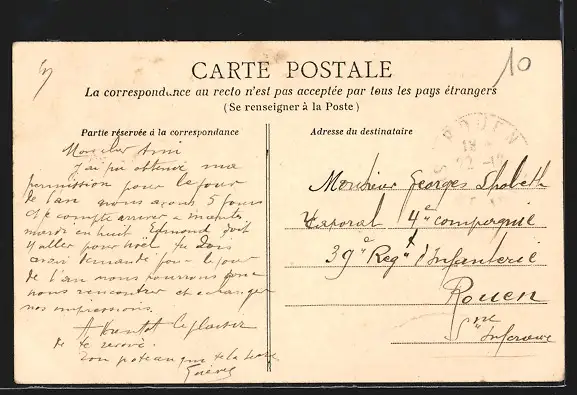 10
CARTE POSTALE
La correspondance au recto n'est pas acceptée par tous les pays étrangers
(Se renseigner à la Poste)
Partie réservée à la correspondance
Mon cher Ami
J'ai pu obtenir ma
permission pour le jour
de l'an nous avons 5 jours
et je compte arriver a
mardi en huit Edmond doit
y aller pour Noël tu dois
avoir demandé pour le jour
de l'an nous pourrons donc
nous rencontrer et echanger
nos impressions.
A Bientot le plaisir
de te revoir.
Ton poteau que te la serre
Adresse du destinataire
ROUEN
Monsieur Georges
Caporal 4e compagnie
39e Regt d'Infanterie
Rouen
Sne Inferieure